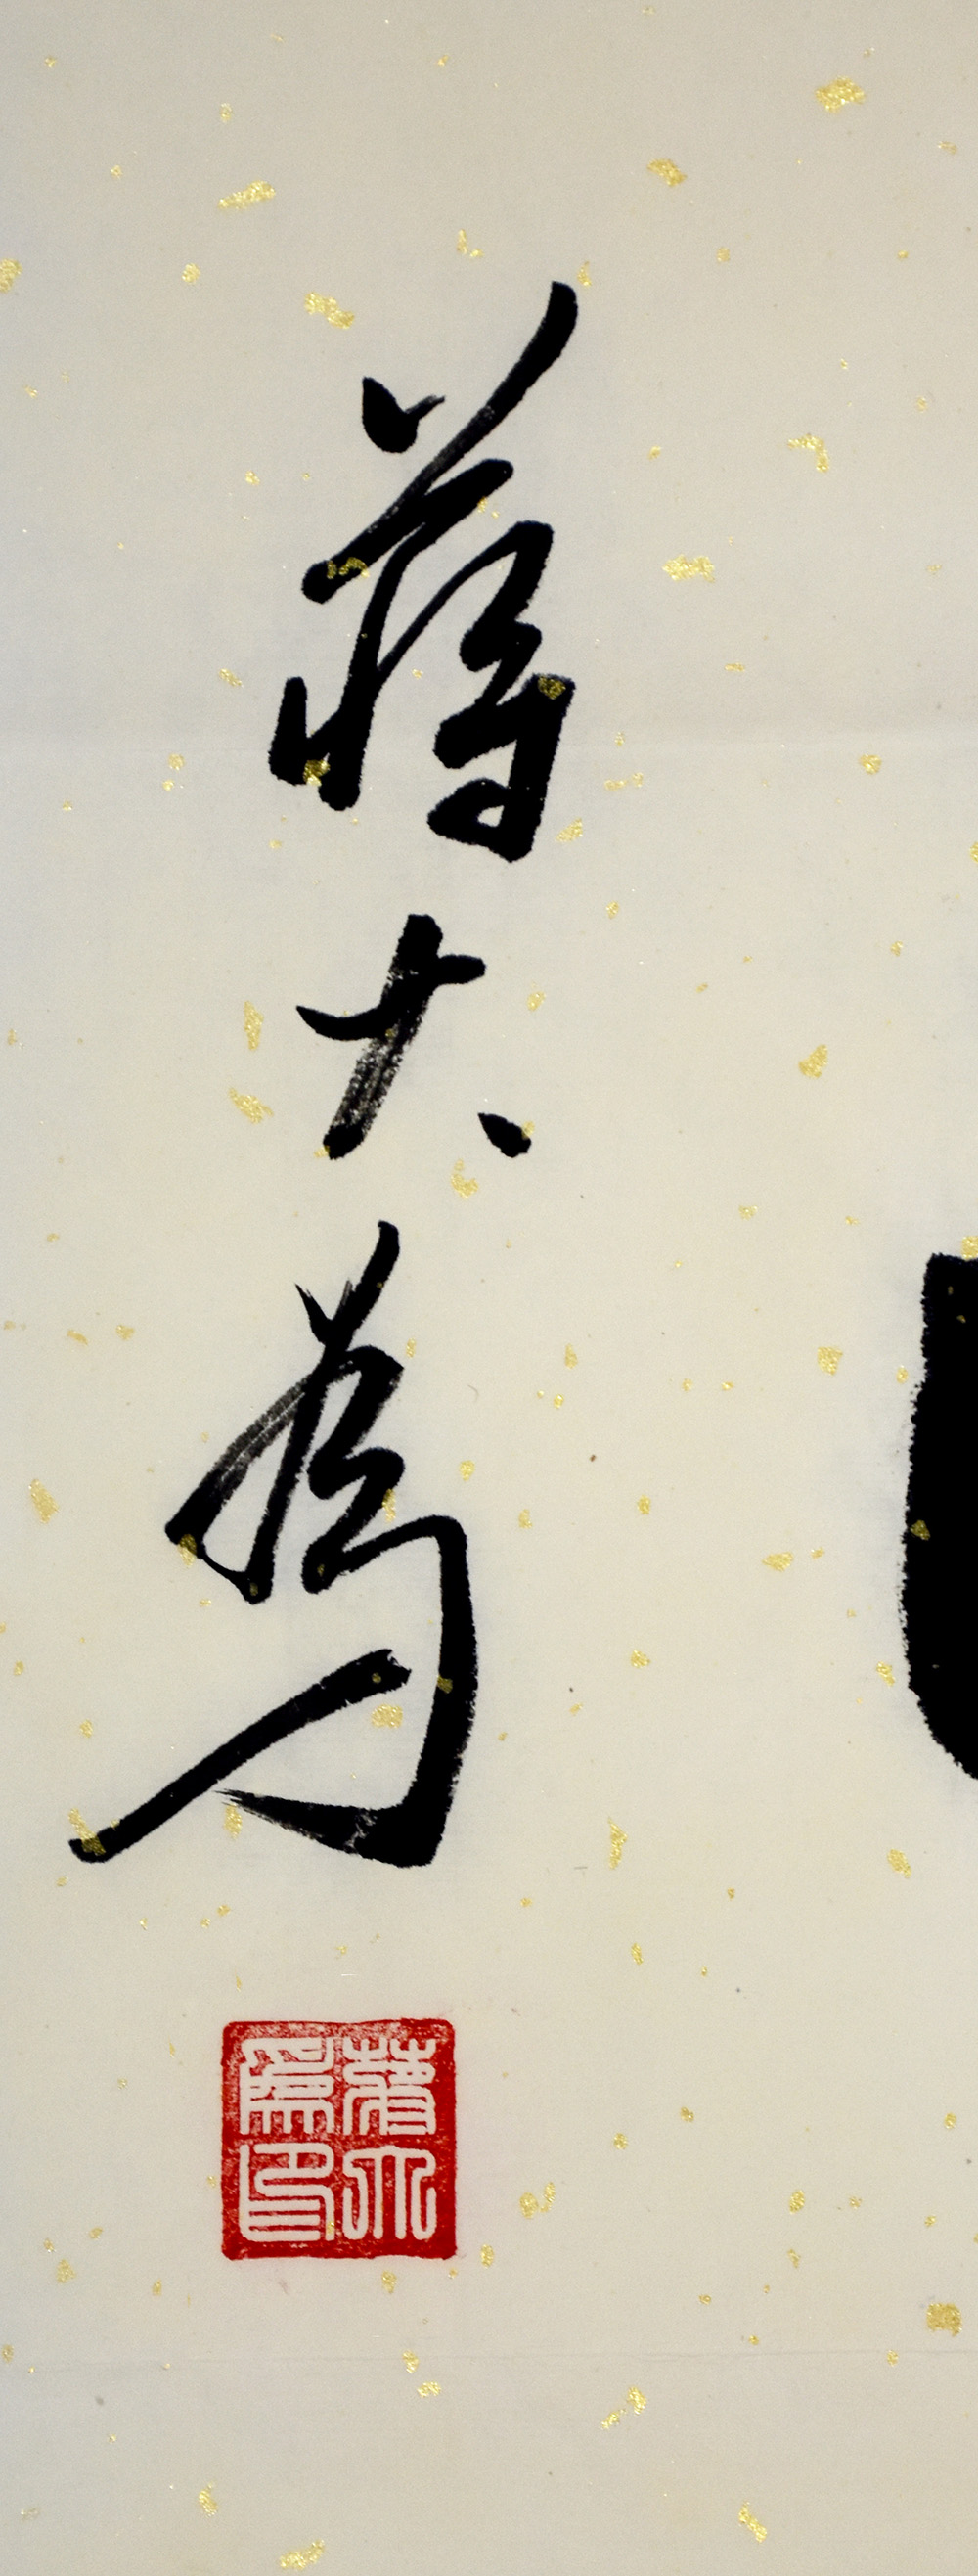 蔣大為
蔣大
為印